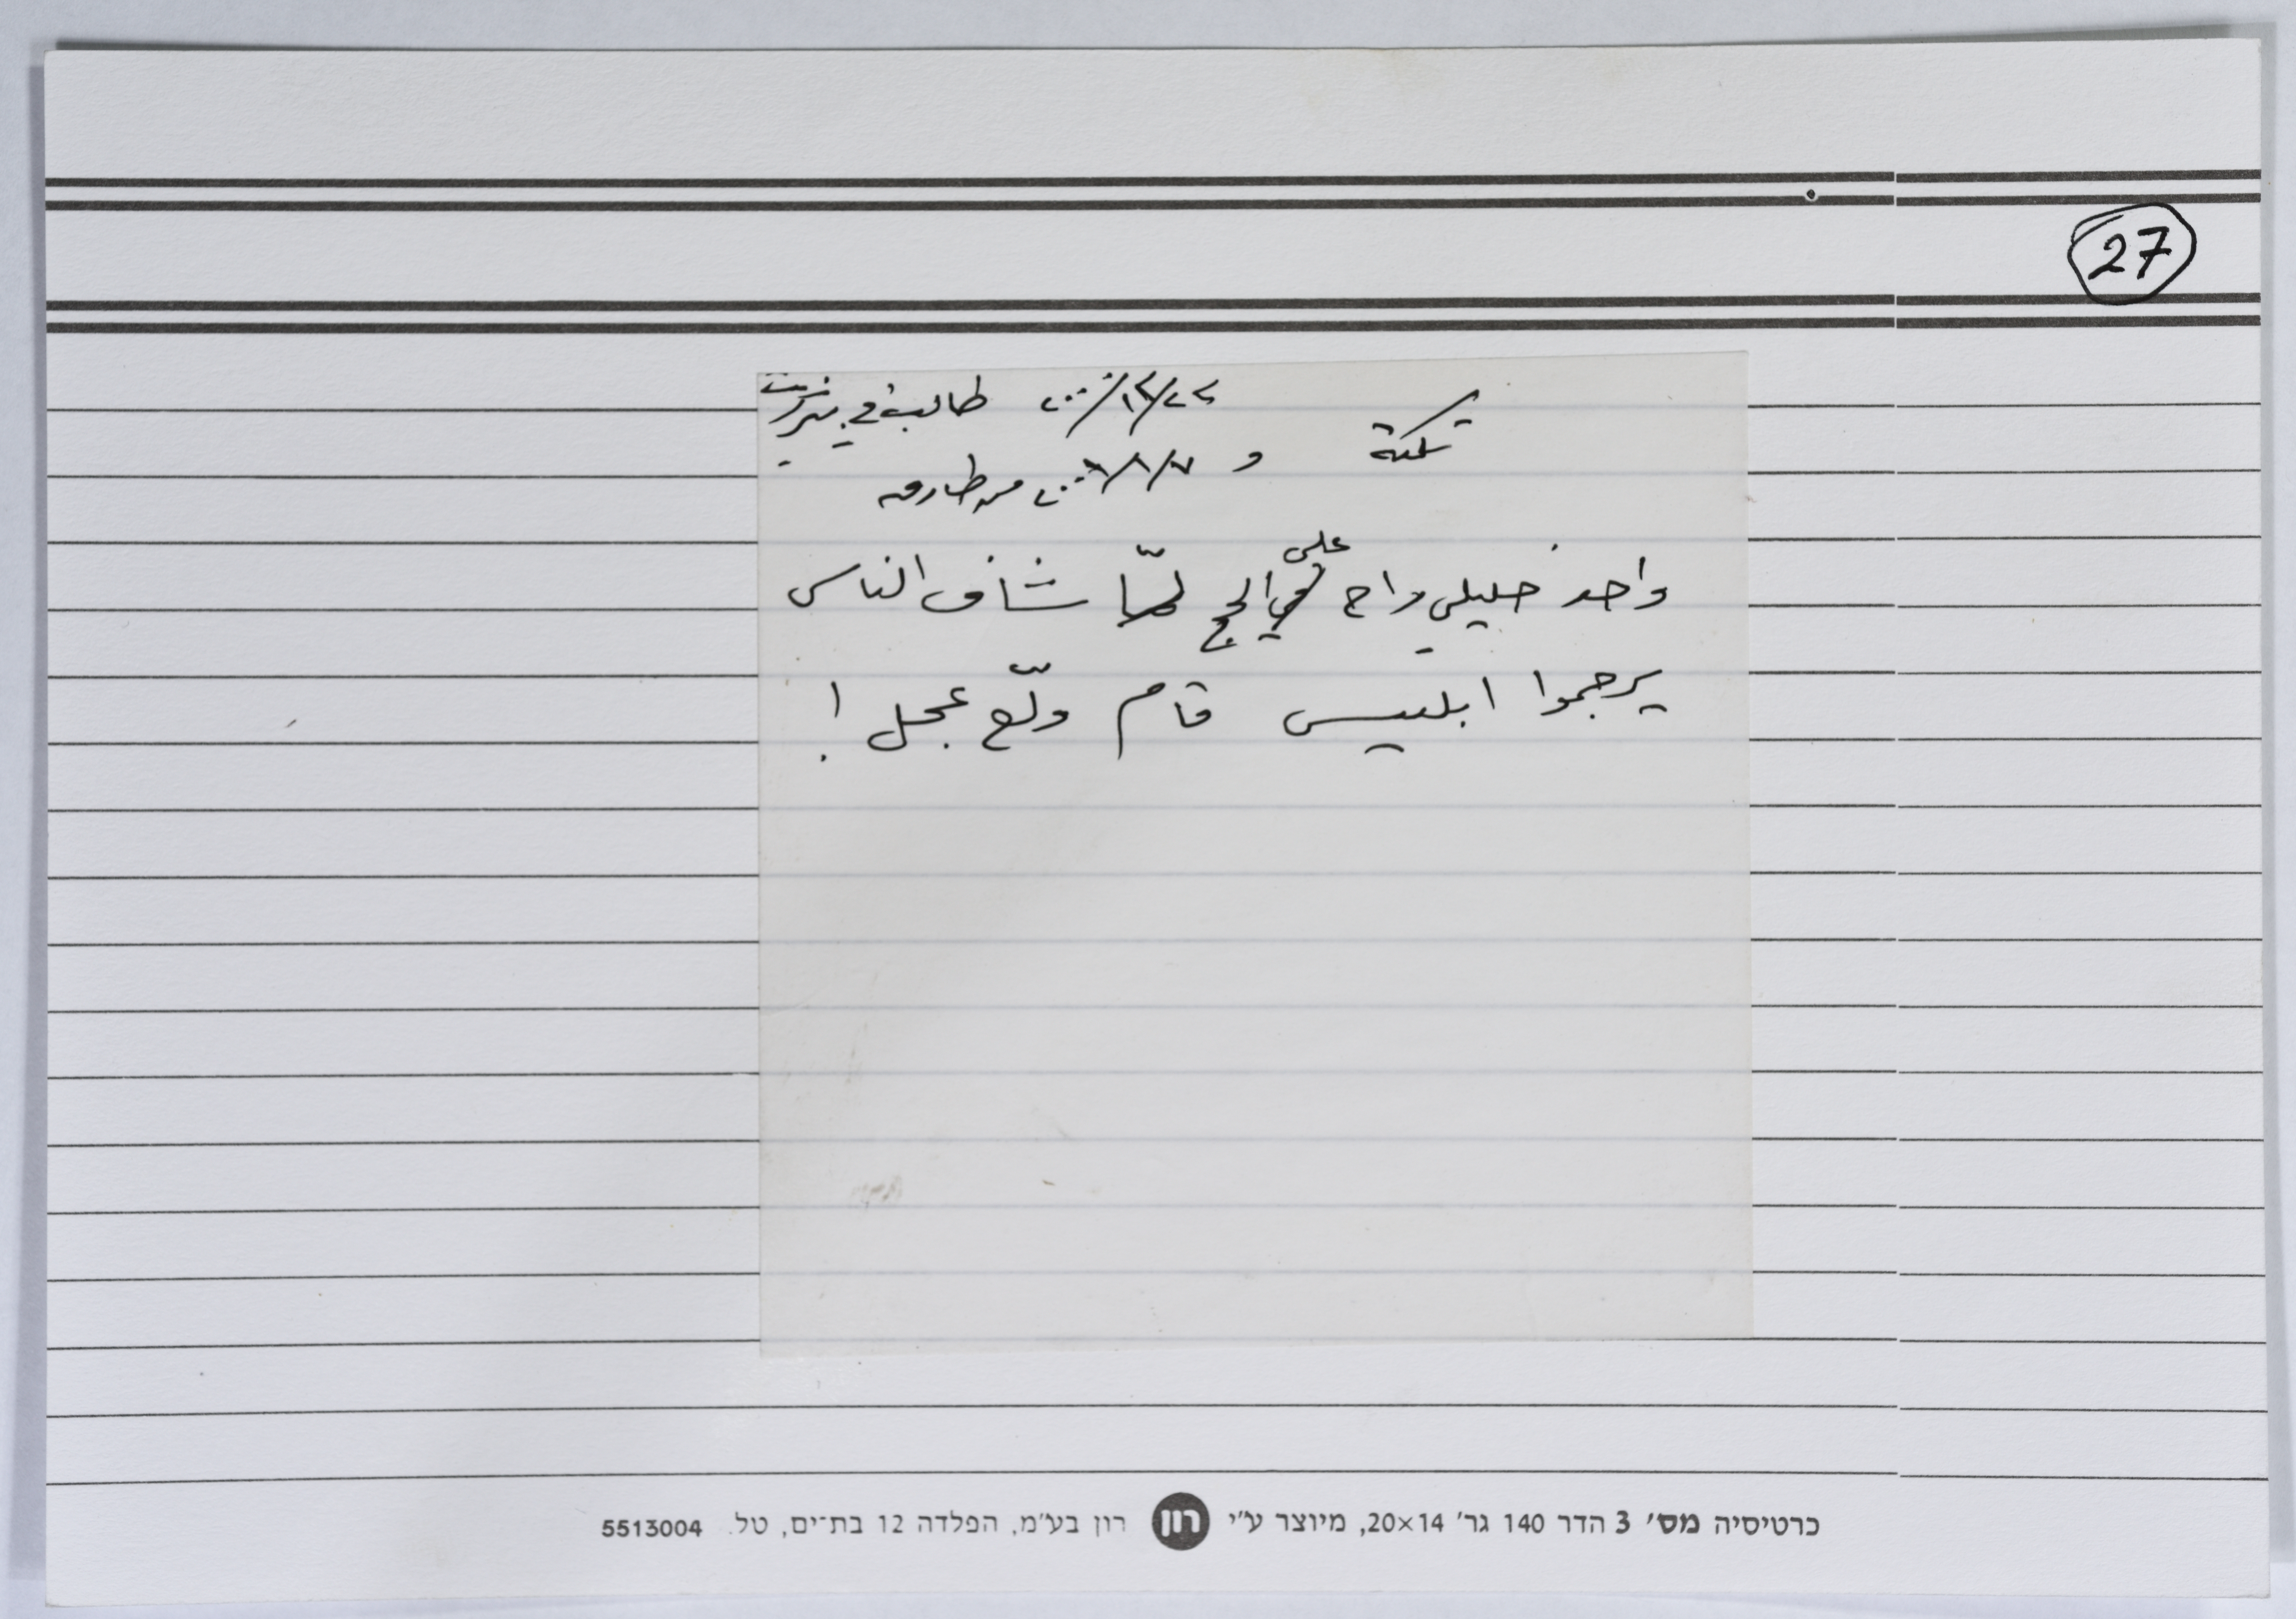 27
نكتة ٢٢/١٢/٢٠٠٠ طالبة في بيرزيت
و ٧/٨/٢٠٠٦ من طارق
واحد خليلي راح على الحج لمّا شاف الناس
يرجموا ابليس قام ولّع عجل !
כרטיסיה מס׳ 3 הדר 140 גר׳ 20×14, מיוצר ע״י רון רון בע״מ, הפלדה 12 בת־ים, טל. 5513004